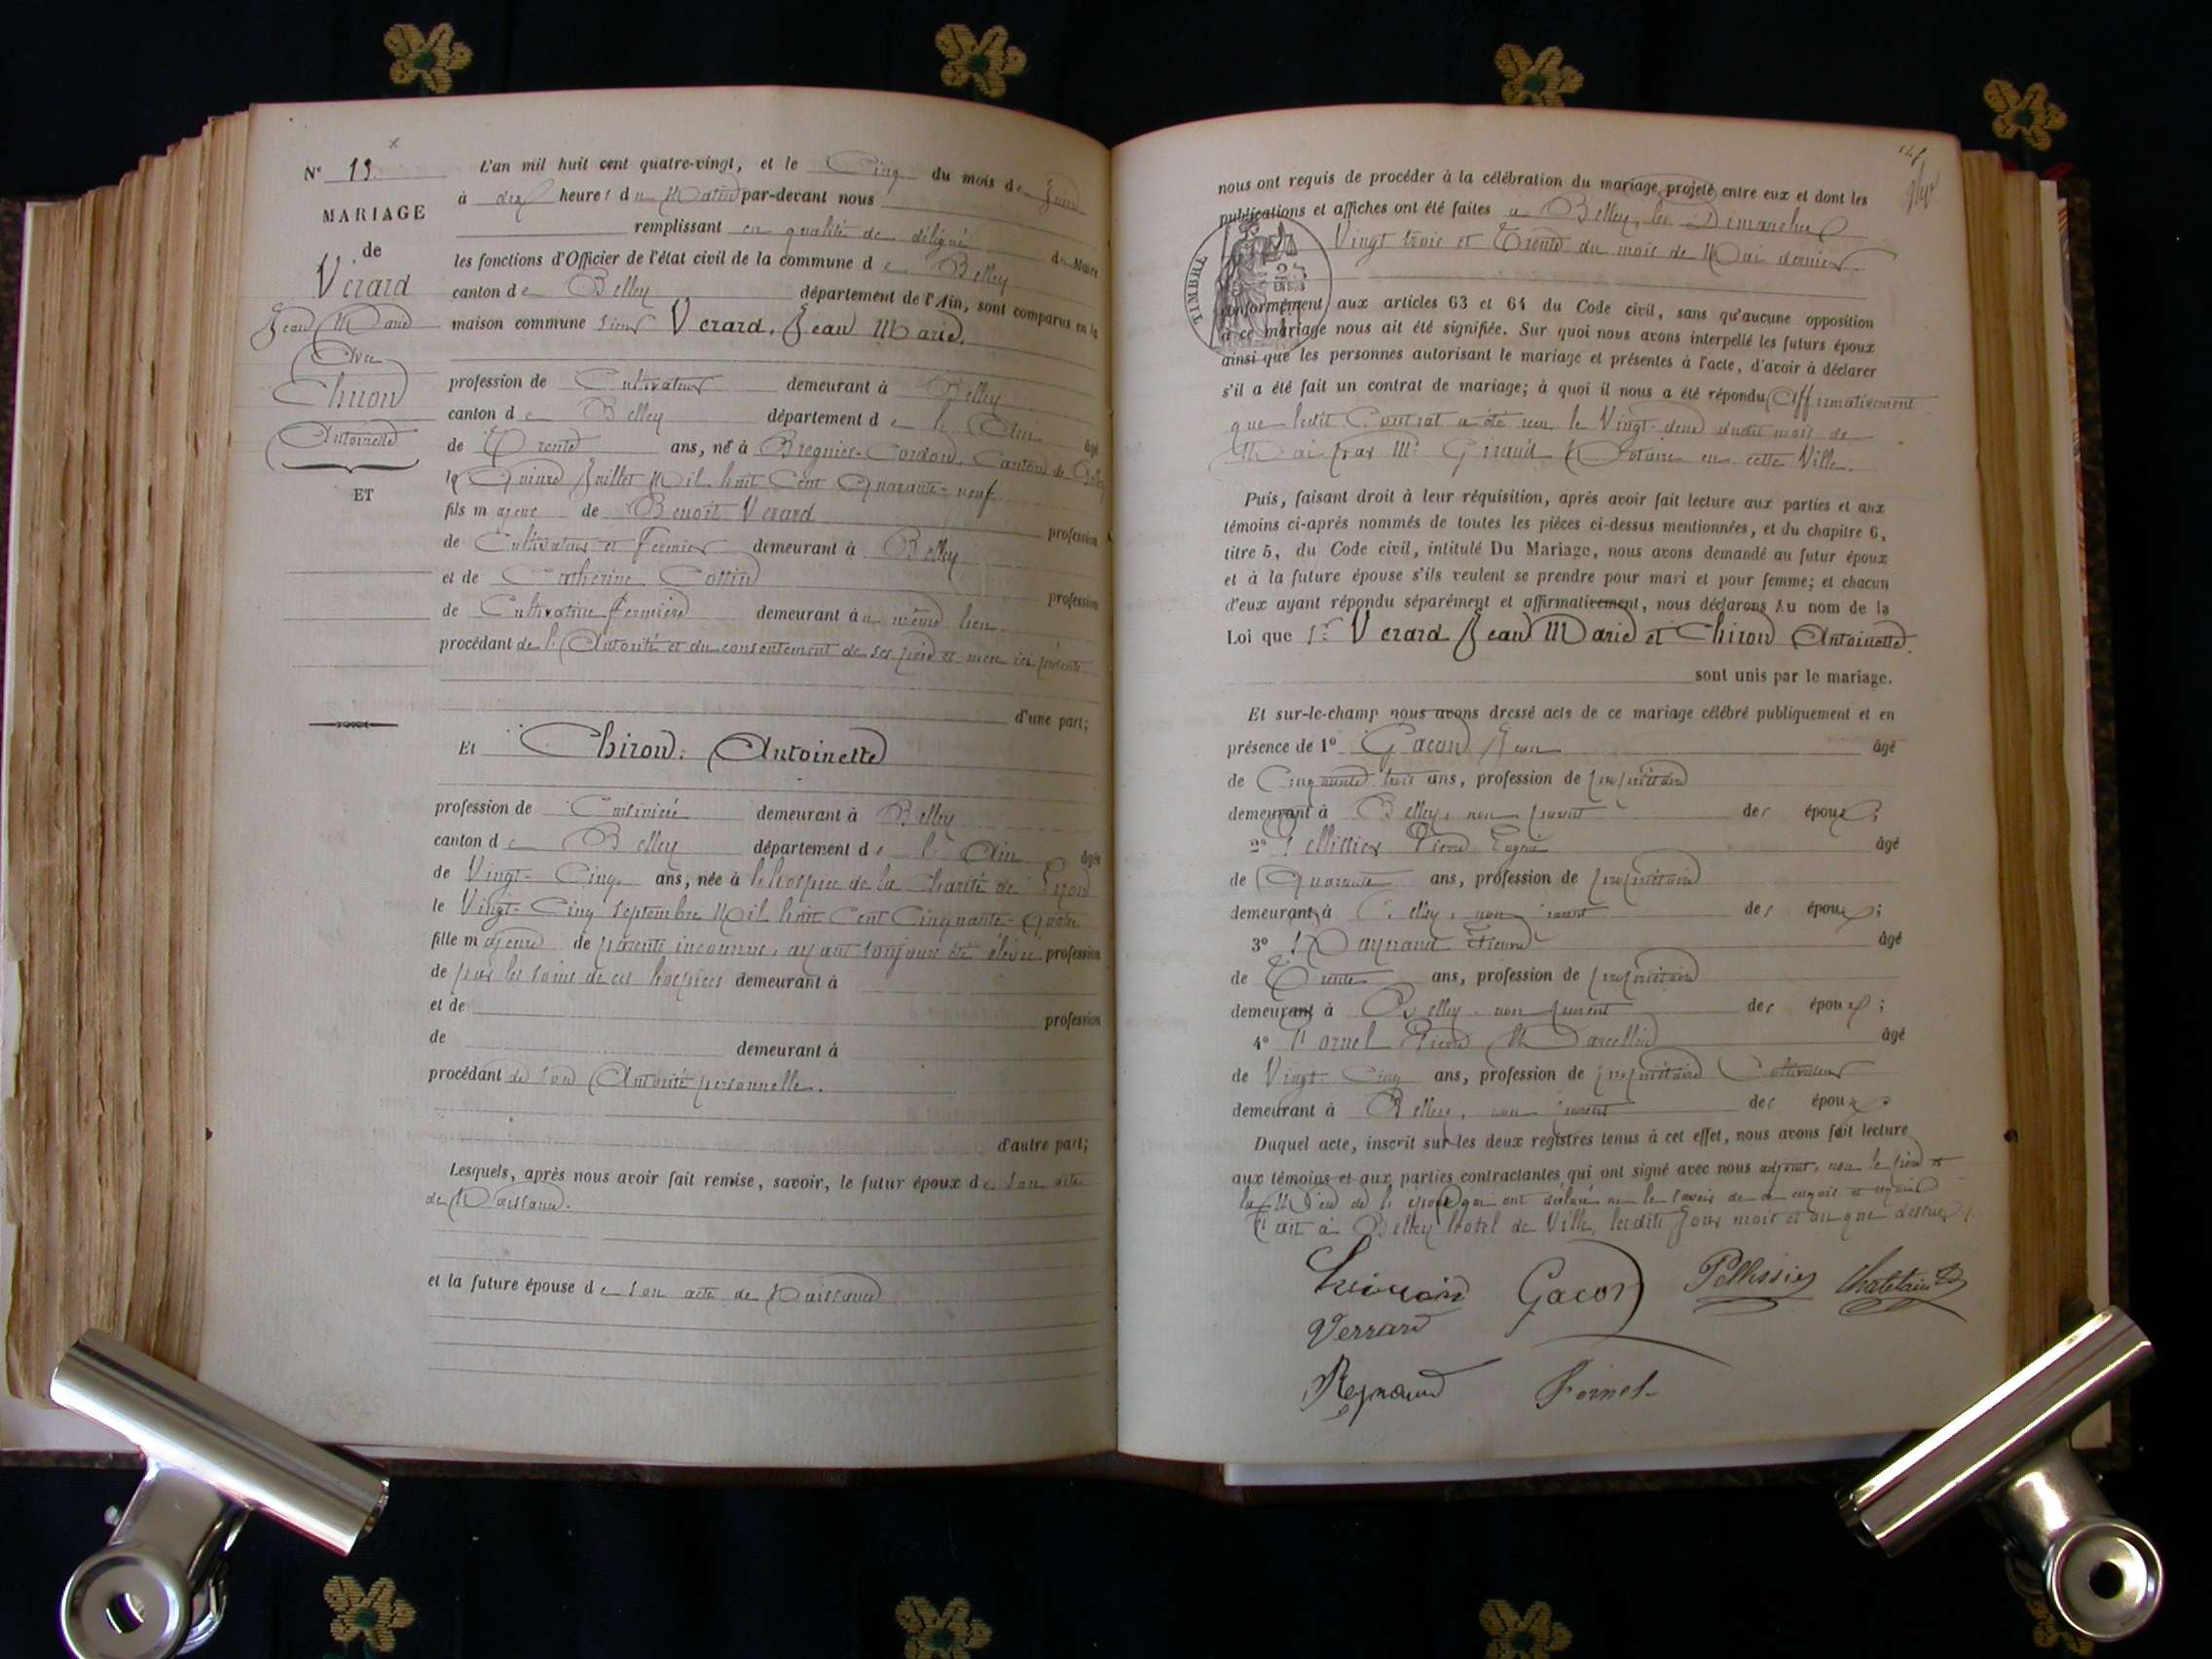 N° 13.
MARIAGE
de
Verard
Jean Marie
Avec
Chiron
Antoinette
ET
L'an mil huit cent quatre-vingt, et le Cinq du mois de Juin
à dix heures du Matin par-devant nous
remplissant en qualité de délégué du Maire
les fonctions d'Officier de l'état civil de la commune de Belley
canton de Belley département de l'Ain, sont comparus en la
maison commune sieur Verard, Jean Marie.
profession de Cultivateur demeurant à Belley
canton de Belley département de l'Ain âgé
de Trente ans, né à Bregnier-Cordon, Canton de Belley
le Quinze Juillet Mil huit Cent Quarante-neuf
fils majeur de Benoit Verard profession
de Cultivateur et Fermier demeurant à Belley
et de Catherine Cottin profession
de Cultivatrice fermière demeurant au même lieu
procédant de l'Autorité et du consentement de ses père et mère ici présents
d'une part;
Et Chiron. Antoinette
profession de Cuisinière demeurant à Belley
canton de Belley département de l'Ain âgée
de Vingt-Cinq ans, née à l'hospice de la Charité de Lyon
le Vingt-Cinq Septembre Mil huit Cent Cinquante-Quatre
fille majeure de parents inconnus, ayant toujours été élevée profession
de par les soins de ces hospices demeurant à
et de profession
de demeurant à
procédant de son Autorité personnelle.
d'autre part;
Lesquels, après nous avoir fait remise, savoir, le futur époux de son acte
de Naissance.
et la future épouse de son acte de Naissance
nous ont requis de procéder à la célébration du mariage projeté entre eux et dont les
publications et affiches ont été faites à Belley, les Dimanches
Vingt trois et Trente du mois de Mai dernier.
TIMBRE
25
CENT.S
conformément aux articles 63 et 64 du Code civil, sans qu'aucune opposition
à ce mariage nous ait été signifiée. Sur quoi nous avons interpellé les futurs époux
ainsi que les personnes autorisant le mariage et présentes à l'acte, d'avoir à déclarer
s'il a été fait un contrat de mariage; à quoi il nous a été répondu Affirmativement
que ledit Contrat a été reçu le Vingt-deux dudit mois de
Mai par Me Giraud Notaire en cette Ville.
Puis, faisant droit à leur réquisition, après avoir fait lecture aux parties et aux
témoins ci-après nommés de toutes les pièces ci-dessus mentionnées, et du chapitre 6,
titre 5, du Code civil, intitulé Du Mariage, nous avons demandé au futur époux
et à la future épouse s'ils veulent se prendre pour mari et pour femme; et chacun
d'eux ayant répondu séparément et affirmativement, nous déclarons Au nom de la
Loi que Sr Verard Jean Marie et Chiron Antoinette.
sont unis par le mariage.
Et sur-le-champ nous avons dressé acte de ce mariage célébré publiquement et en
présence de 1° Gacon Jean âgé
de Cinquante trois ans, profession de propriétaire
demeurant à Belley, non parent des époux;
2° Pellissier Pierre Eugène âgé
de Quarante ans, profession de propriétaire
demeurant à Belley, non parent des époux;
3° Raynaud Etienne âgé
de Trente ans, profession de propriétaire
demeurant à Belley non parent des époux;
4° Fornel Pierre Marcellin âgé
de Vingt-Cinq ans, profession de propriétaire Cultivateur
demeurant à Belley, non parent des époux
Duquel acte, inscrit sur les deux registres tenus à cet effet, nous avons fait lecture
aux témoins et aux parties contractantes qui ont signé avec nous adjoint, non le père et
la Mère de l'époux qui ont déclaré ne le savoir de ce enquis et requis
Fait à Belley hotel de Ville, lesdits Jour mois et an que dessus.
Gacon Pellissier Chatelain
Verrard
Reynaud Fornel